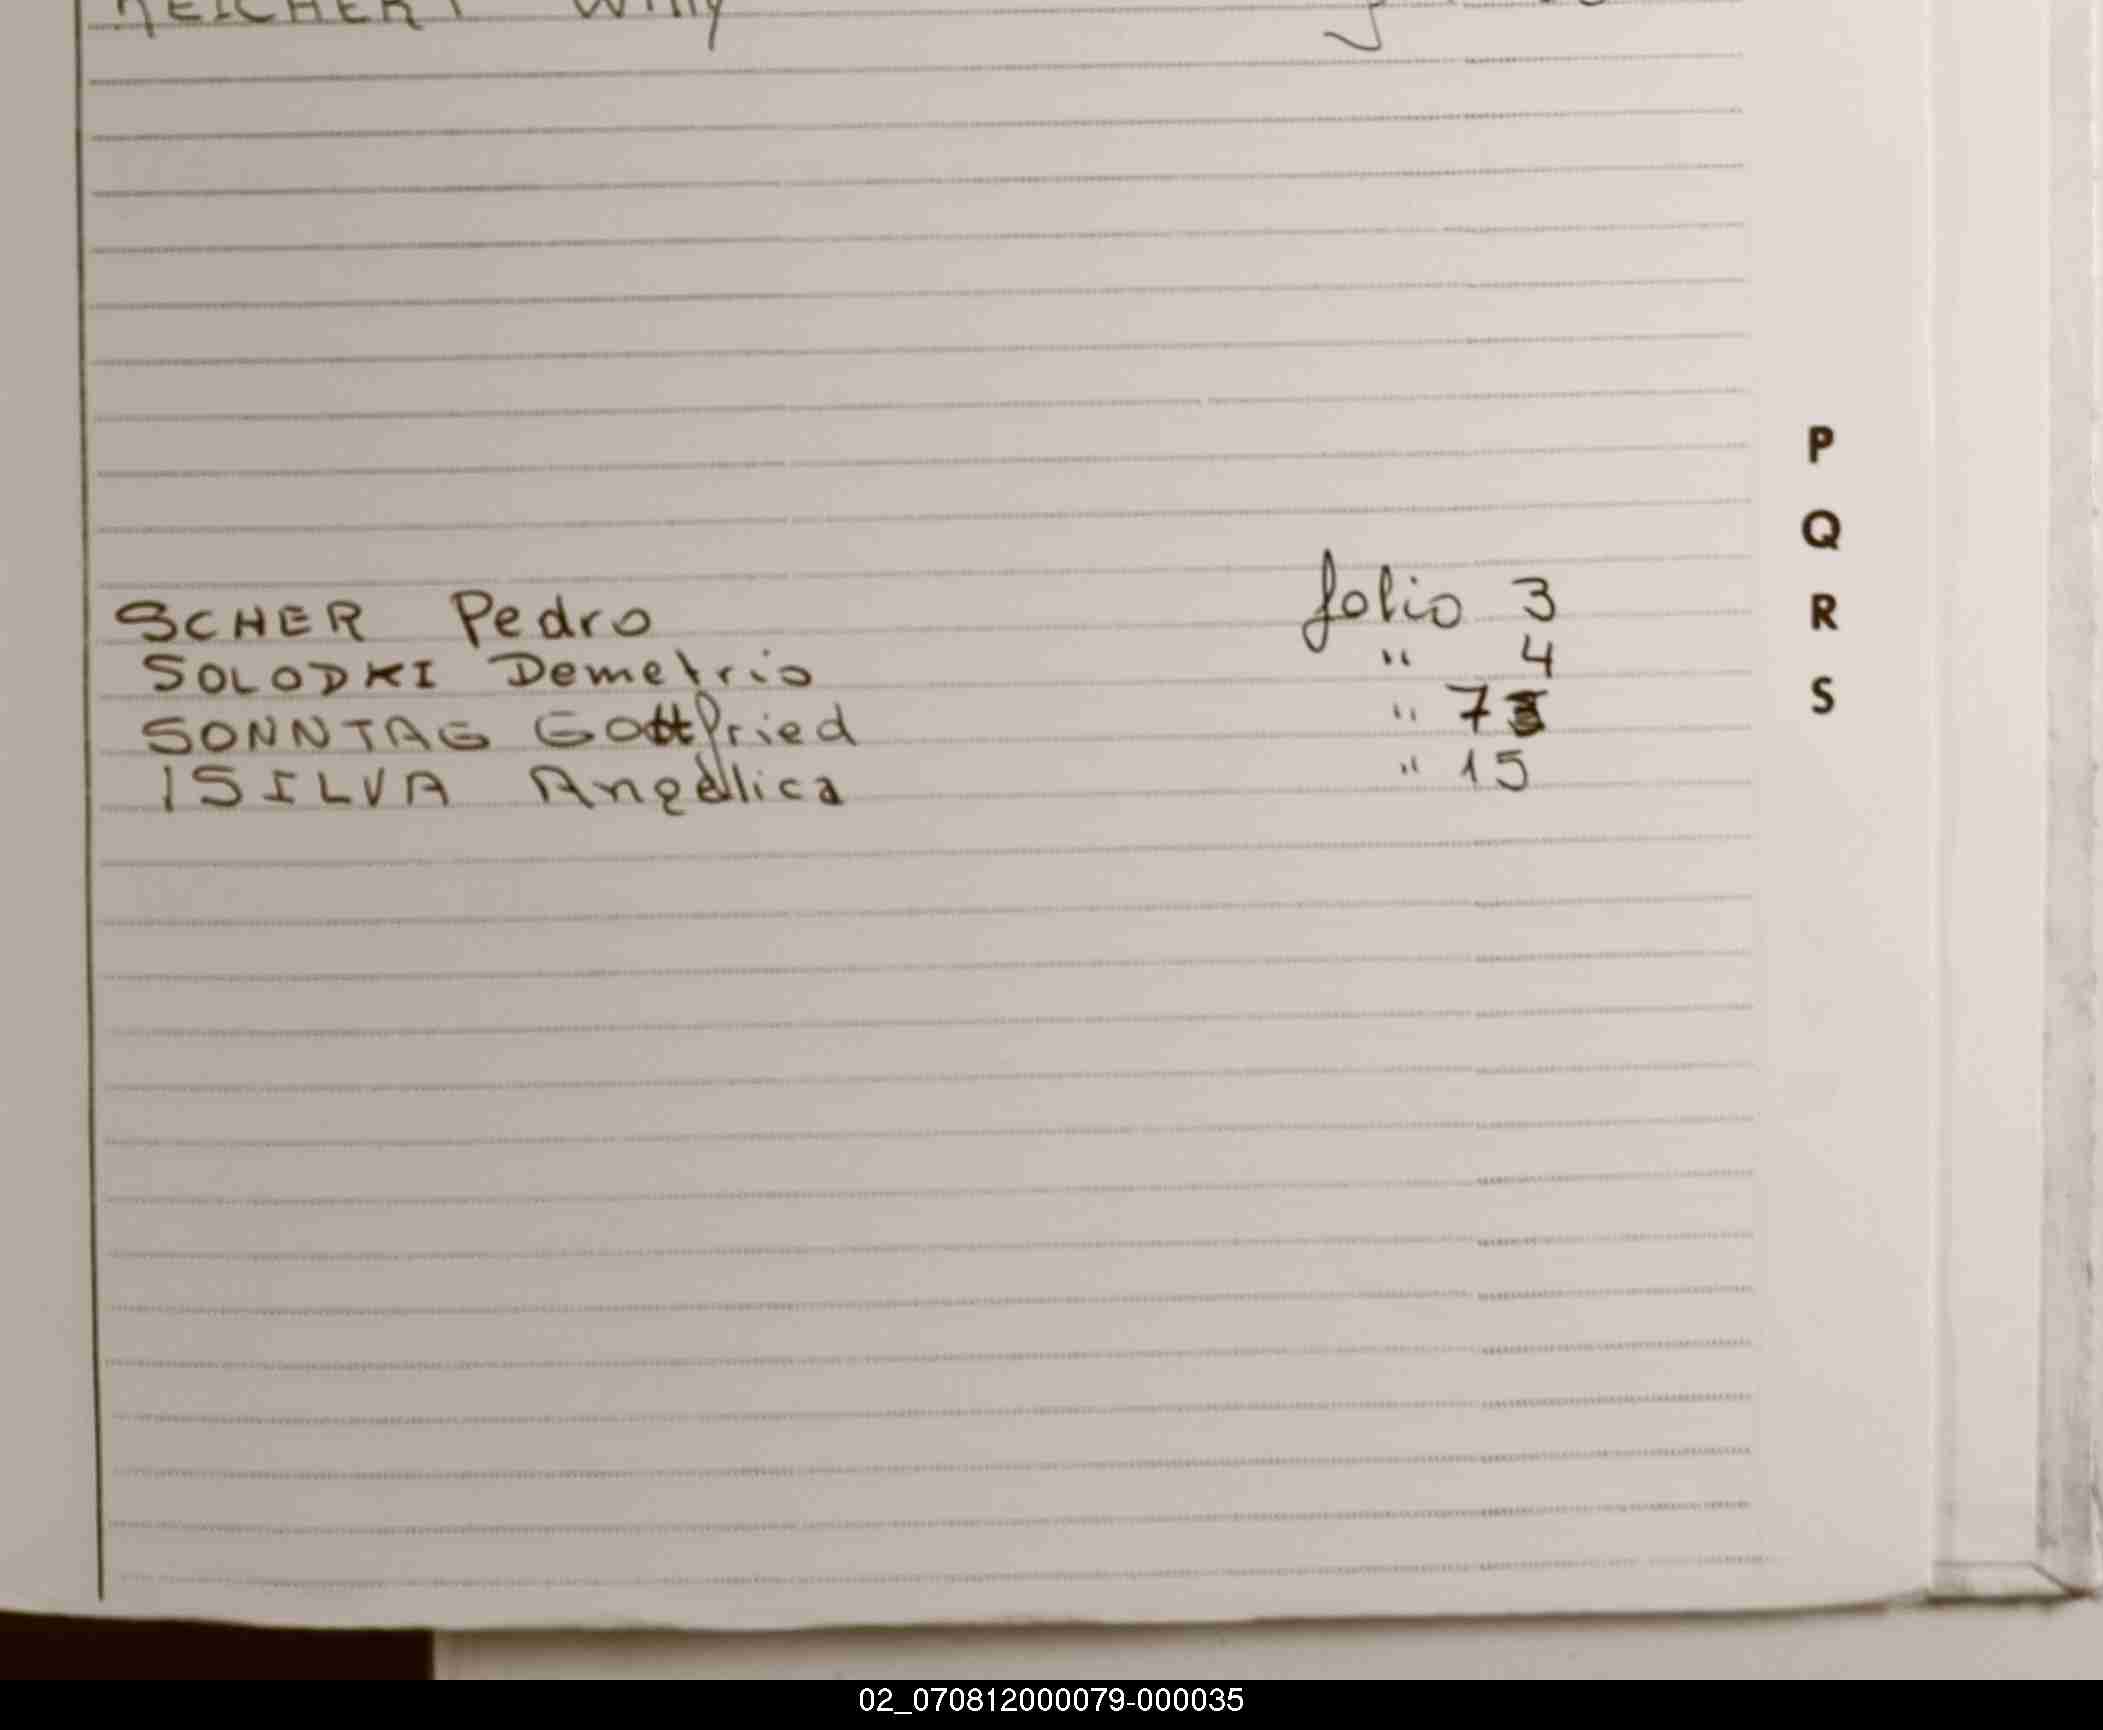 REICHERT Willy
P
Q
SCHER Pedro folio 3
R
SOLODKI Demetrio " 4
S
SONNTAG Gottfried " 7
ISILVA Angellica " 15
02_070812000079-000035